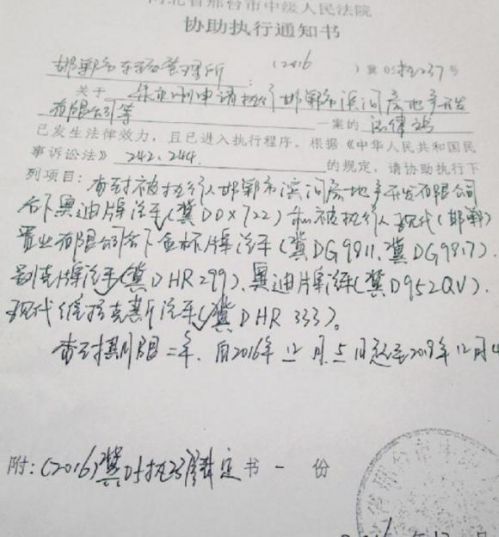 河北省邢台市中级人民法院
协助执行通知书
邯郸市车辆管理所 (2016) 冀05执237号
关于 申请执行邯郸市滨河房地产开发
有限公司等 一案的 法律
已发生法律效力，且已进入执行程序。根据《中华人民共和国民
事诉讼法》 242、244 的规定，请协助执行下
列项目：查封被执行人邯郸市滨河房地产开发有限公司
名下奥迪牌汽车(冀D0X722)和被执行人现代(邯郸)
置业有限公司名下金杯牌汽车(冀DG9811、冀DG9817)、
别克牌汽车(冀DHR299)、奥迪牌汽车(冀D952QV)、
现代维拉克斯汽车(冀DHR333)。
查封期限三年，自2016年12月5日起至2019年12月4
附：(2016)冀05执 裁定书一份